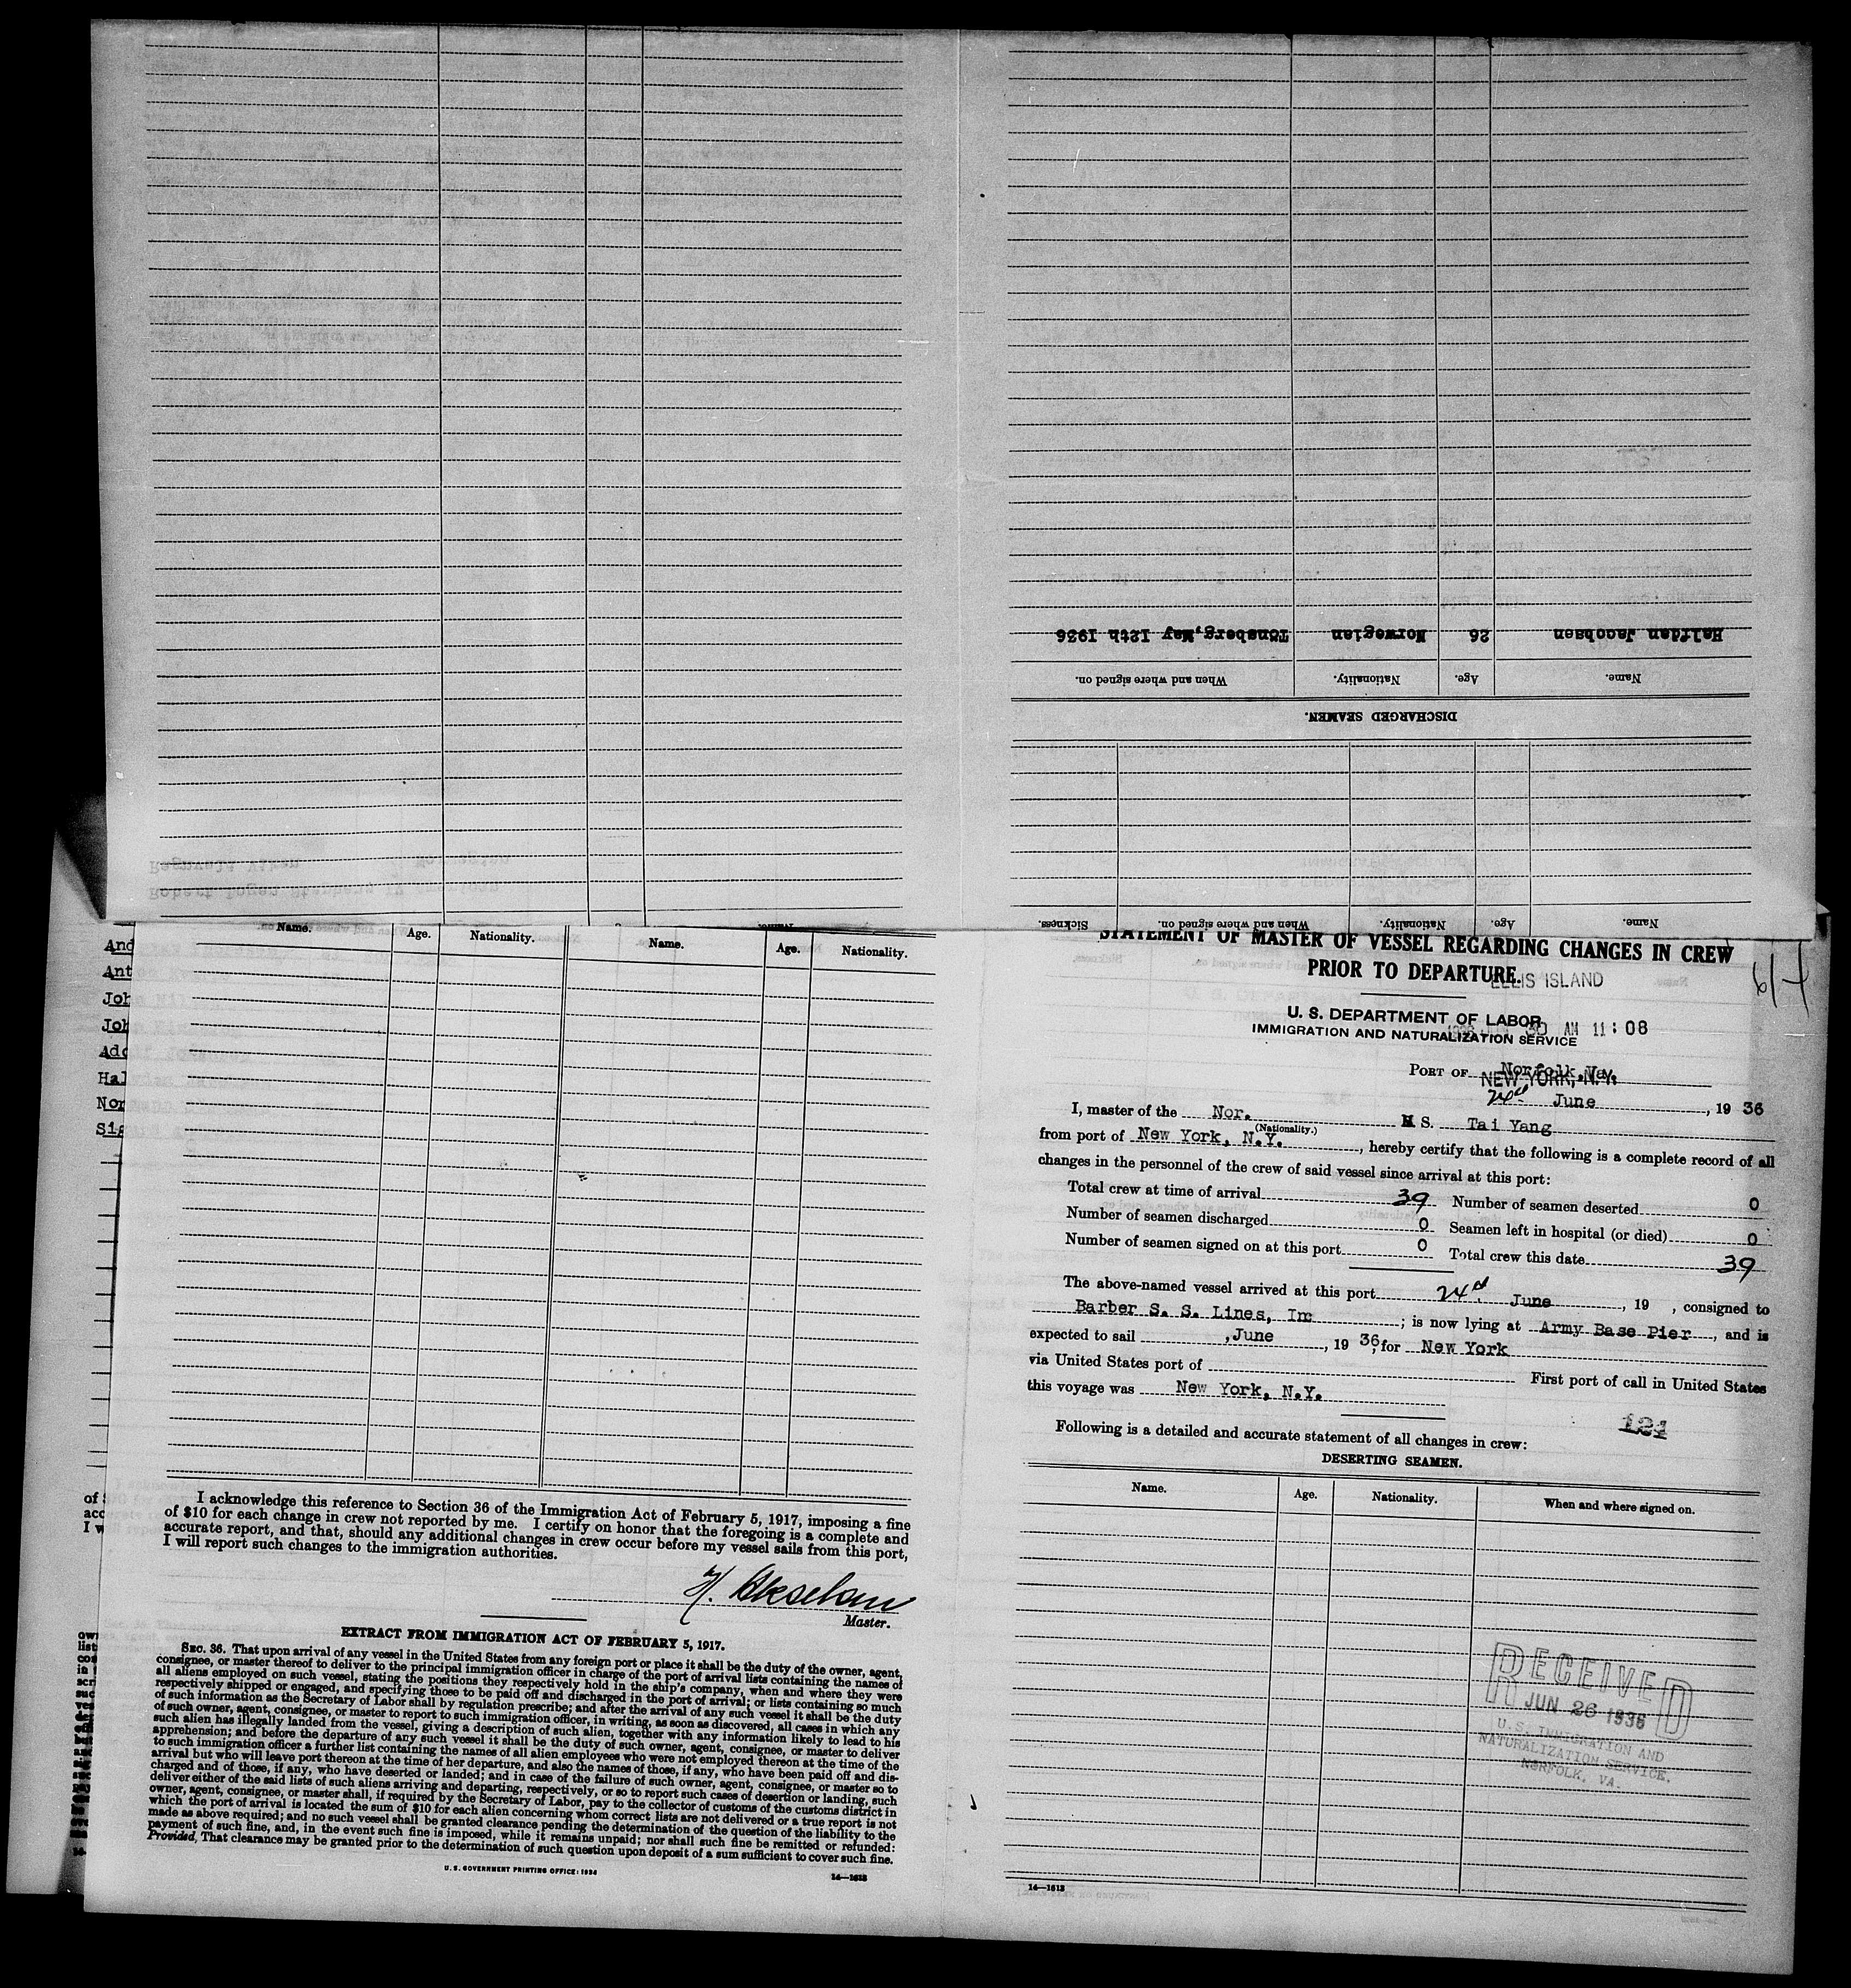 Name. Age. Nationality. When and where signed on. Sickness.
DISCHARGED SEAMEN.
Name. Age. Nationality. When and where signed on.
Halfdan Jacobsen 26 Norwegian Tönsberg, May 12th 1936
And
Ant
Joh
Joh
Ado
Hal
Nor
Sig
Name. Age. Nationality. Name. Age. Nationality.
I acknowledge this reference to Section 36 of the Immigration Act of February 5, 1917, imposing a fine
of $10 for each change in crew not reported by me. I certify on honor that the foregoing is a complete and
accurate report, and that, should any additional changes in crew occur before my vessel sails from this port,
I will report such changes to the immigration authorities.
Master.
EXTRACT FROM IMMIGRATION ACT OF FEBRUARY 5, 1917.
SEC. 36. That upon arrival of any vessel in the United States from any foreign port or place it shall be the duty of the owner, agent,
consignee, or master thereof to deliver to the principal immigration officer in charge of the port of arrival lists containing the names of
all aliens employed on such vessel, stating the positions they respectively hold in the ship's company, when and where they were
respectively shipped or engaged, and specifying those to be paid off and discharged in the port of arrival; or lists containing so much
of such information as the Secretary of Labor shall by regulation prescribe; and after the arrival of any such vessel it shall be the duty
of such owner, agent, consignee, or master to report to such immigration officer, in writing, as soon as discovered, all cases in which any
such alien has illegally landed from the vessel, giving a description of such alien, together with any information likely to lead to his
apprehension; and before the departure of any such vessel it shall be the duty of such owner, agent, consignee, or master to deliver
to such immigration officer a further list containing the names of all alien employees who were not employed thereon at the time of the
arrival but who will leave port thereon at the time of her departure, and also the names of those, if any, who have been paid off and dis-
charged and of those, if any, who have deserted or landed; and in case of the failure of such owner, agent, consignee, or master so to
deliver either of the said lists of such aliens arriving and departing, respectively, or so to report such cases of desertion or landing, such
owner, agent, consignee, or master shall, if required by the Secretary of Labor, pay to the collector of customs of the customs district in
which the port of arrival is located the sum of $10 for each alien concerning whom correct lists are not delivered or a true report is not
made as above required; and no such vessel shall be granted clearance pending the determination of the question of the liability to the
payment of such fine, and, in the event such fine is imposed, while it remains unpaid; nor shall such fine be remitted or refunded:
Provided, That clearance may be granted prior to the determination of such question upon deposit of a sum sufficient to cover such fine.
U. S. GOVERNMENT PRINTING OFFICE: 1934 14—1613
STATEMENT OF MASTER OF VESSEL REGARDING CHANGES IN CREW
PRIOR TO DEPARTURE.
ELLIS ISLAND
U. S. DEPARTMENT OF LABOR
IMMIGRATION AND NATURALIZATION SERVICE
30 AM 11:08
PORT OF Norfolk, Va.
NEW YORK, N.Y.
June, 19 36
I, master of the Nor. M S. Tai Yang
(Nationality.)
from port of New York, N.Y., hereby certify that the following is a complete record of all
changes in the personnel of the crew of said vessel since arrival at this port:
Total crew at time of arrival 39 Number of seamen deserted 0
Number of seamen discharged 0 Seamen left in hospital (or died) 0
Number of seamen signed on at this port 0 Total crew this date 39
The above-named vessel arrived at this port 24th June, 19 , consigned to
Barber S. S. Lines, Inc ; is now lying at Army Base Pier, and is
expected to sail , June, 19 36, for New York
via United States port of First port of call in United States
this voyage was New York, N.Y.
124
Following is a detailed and accurate statement of all changes in crew:
DESERTING SEAMEN.
Name. Age. Nationality. When and where signed on.
RECEIVED
JUN 26 1936
U.S. IMMIGRATION AND
NATURALIZATION SERVICE,
NORFOLK, VA.
14—1613